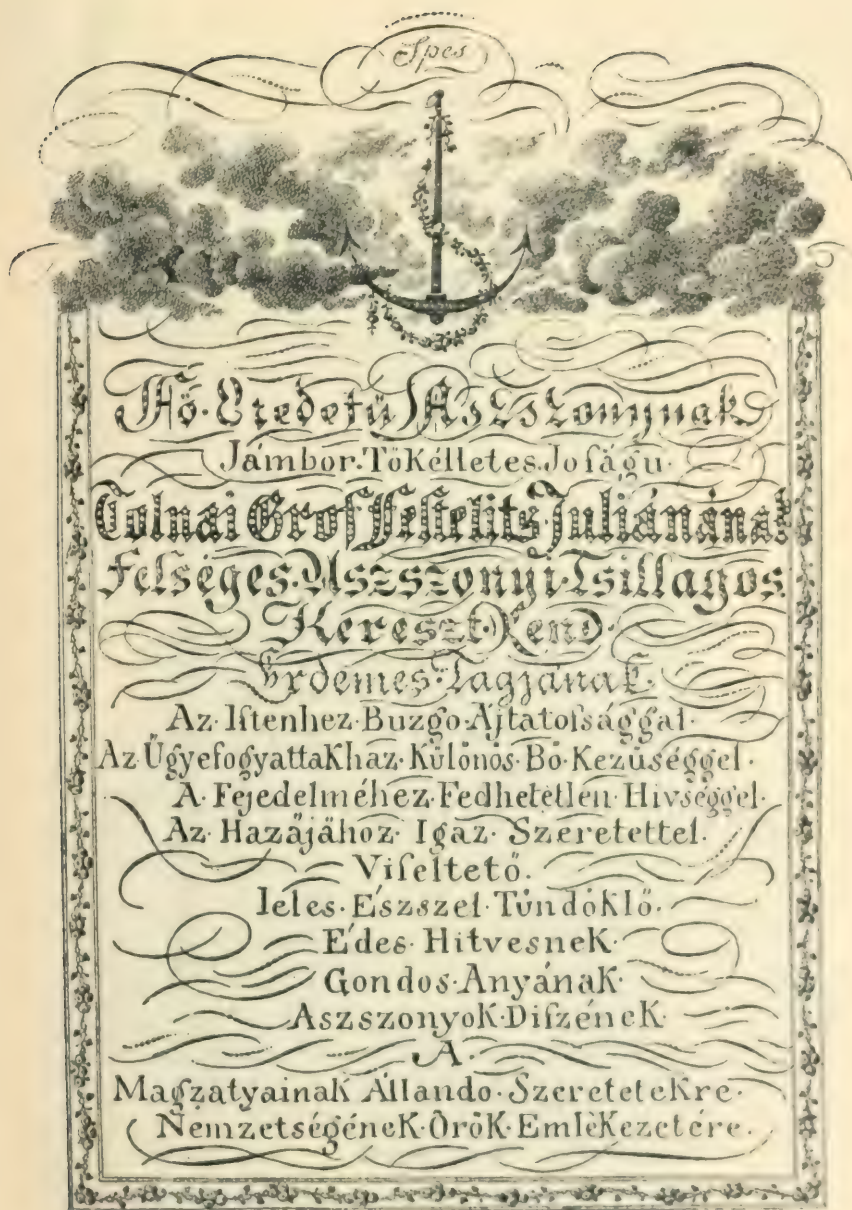 Spes
Fő·Eredetü Aszszonynak
Jámbor·Tökélletes·Joſágu·
Tolnai Grof Feſtetits·Juliánának
Felséges·Aszszonyi·Tsillagos
Kereszt·Rend·
Érdemes·Tagjának·
Az·Iſtenhez·Buzgo·Ájtatoſsággal·
Az·Ügyefogyattakhaz·Külônös·Bö·Kezüséggel·
A·Fejedelméhez·Fedhetetlen·Hivséggel·
Az·Hazájához·Igaz·Szeretettel·
Viſeltető·
Ieles·Észszel·Tündöklő·
Édes·Hitvesnek·
Gondos·Anyának·
Aszszonyok·Diſzének·
A·
Magzatyainak Állando·Szeretetekre·
Nemzetségének·Örök·Emlékezetére·